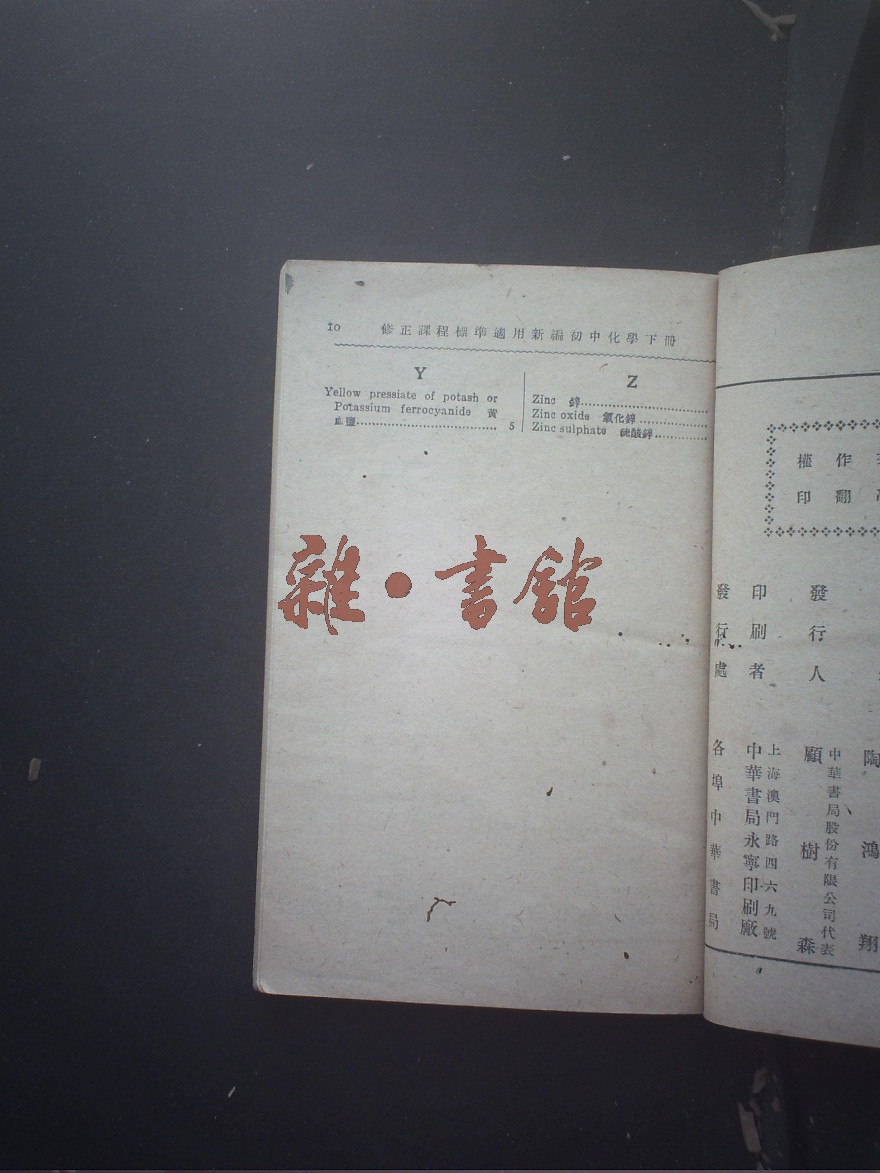 10 修正課程標準適用新編初中化學下冊
Y
Yellow pressiate of potash or
Potassium ferrocyanide 黃
血鹽................................ 5
Z
Zinc 鋅................................
Zinc oxide 氧化鋅................
Zinc sulphate 硫酸鋅.............
雜·書館
作權
翻印
陶鴻翔
中華書局股份有限公司代表
發行人 顧樹森
上海澳門路四六九號
印刷者 中華書局永寧印刷廠
發行處 各埠中華書局